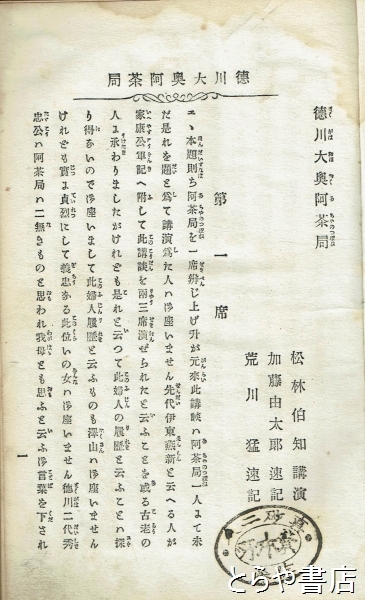 德川大奥阿茶局
德川大奥阿茶局
松林伯知講演
加藤由太郎速記
荒川猛速記
第一席
エヽ本題則ち阿茶局を一席辨じ上げ升が元來此講談ハ阿茶局一人よて未
だ是れを題と爲て講演爲た人ハ御座いません先代伊東燕新と云へる人が
家康公軍記へ附して此講談を兩三席演ぜられたと云ふことを或る古老の
人よ承わりましたがけれども是れと云つて此婦人の履歴と云ふことハ探
り得ないので御座いまして此婦人履歴と云ふものも澤山ハ御座いません
けれども實よ貞烈にして義忠なる此位いの女ハ御座いません德川二代秀
忠公ハ阿茶局ハ二無きものと思われ我母とも思ふと云ふ御言葉を下され
一
とらや書店